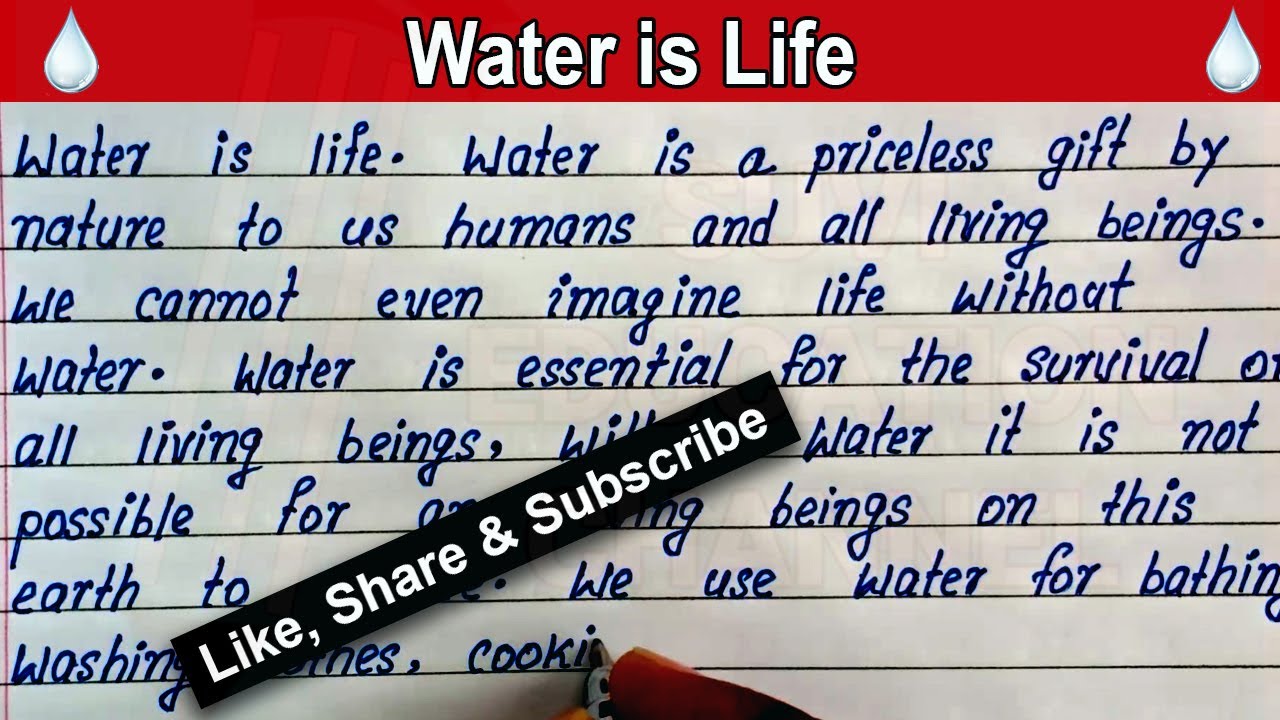 Water is Life
Water is life. Water is a priceless gift by
nature to us humans and all living beings.
We cannot even imagine life without
water. Water is essential for the survival of
all living beings, water it is not
possible for beings on this
earth to We use water for bathing
washing cooki
Like, Share & Subscribe
SUVI
EDUCATION
CHANNEL